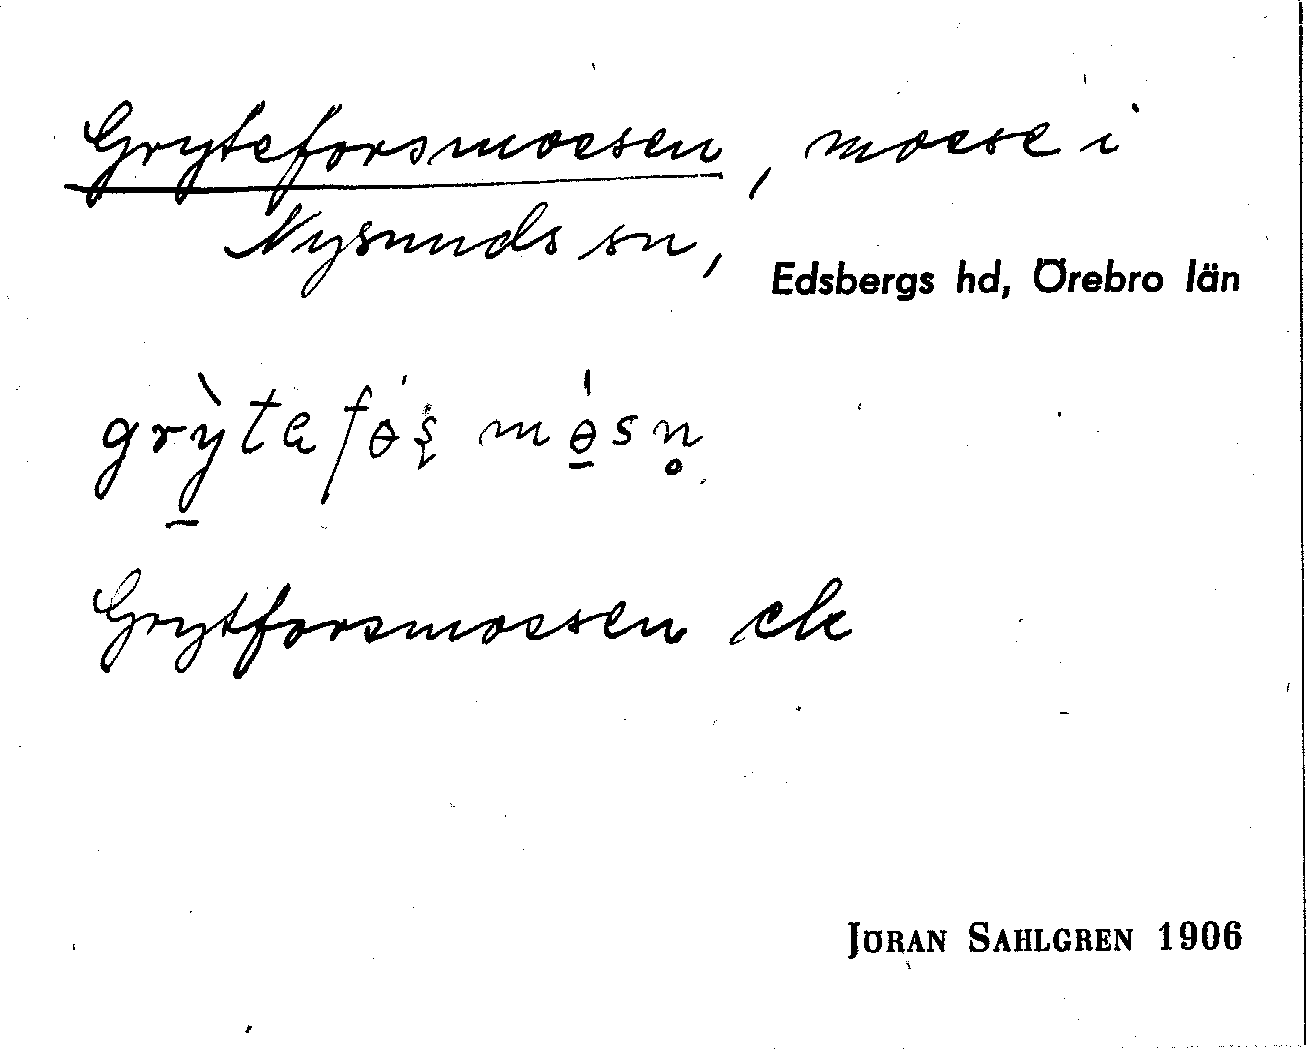 Gryteforsmossen, mosse i
Nysunds sn,
Edsbergs hd, Örebro län
grỳtefɵ́ș mɵ̀sn̥
Grytforsmossen ek
JÖRAN SAHLGREN 1906